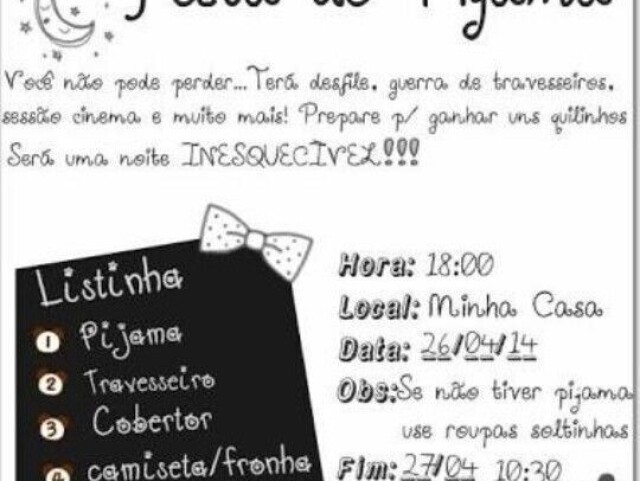 Festa do Pijama
Você não pode perder...Terá desfile, guerra de travesseiros,
sessão cinema e muito mais! Prepare p/ ganhar uns quilinhos
Será uma noite INESQUECÍVEL!!!
Listinha
1 Pijama
2 Travesseiro
3 Cobertor
4 camiseta/fronha
Hora: 18:00
Local: Minha Casa
Data: 26/04/14
Obs:Se não tiver pijama
use roupas soltinhas
Fim: 27/04 10:30